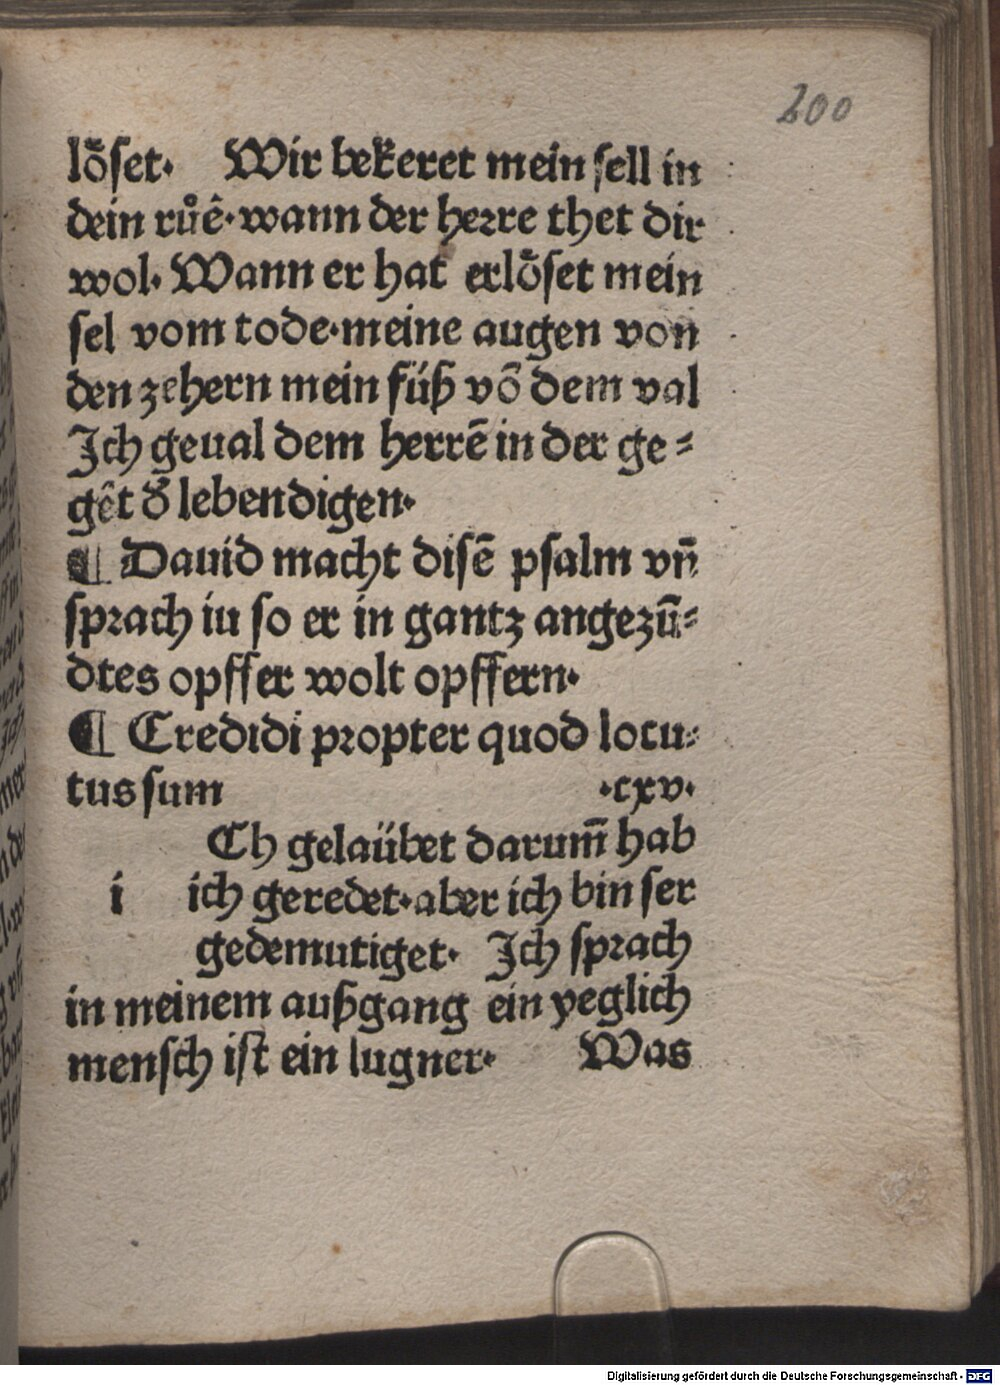 200
loͤſet· Wir bekeret mein ſell in
dein ruͦê·wann der herre thet dir
wol· Wann er hat erloͤſet mein
ſel vom tode·meine augen von
den zehern mein füß võ dem val
Ich geual dem herrē in der ge⸗
gēt d̄ lebendigen·
¶ Dauid macht diſē pſalm vn̄
ſprach iu ſo er in gantz angezū⸗
dtes opffer wolt opffern·
¶ Credidi propter quod locu⸗
tus sum ·cxv·
Ch gelaübet darum̄ hab
i ich geredet·aber ich bin ſer
gedemutiget· Ich ſprach
in meinem außgang ein yeglich
menſch iſt ein lugner· Was
Digitalisierung gefördert durch die Deutsche Forschungsgemeinschaft - DFG